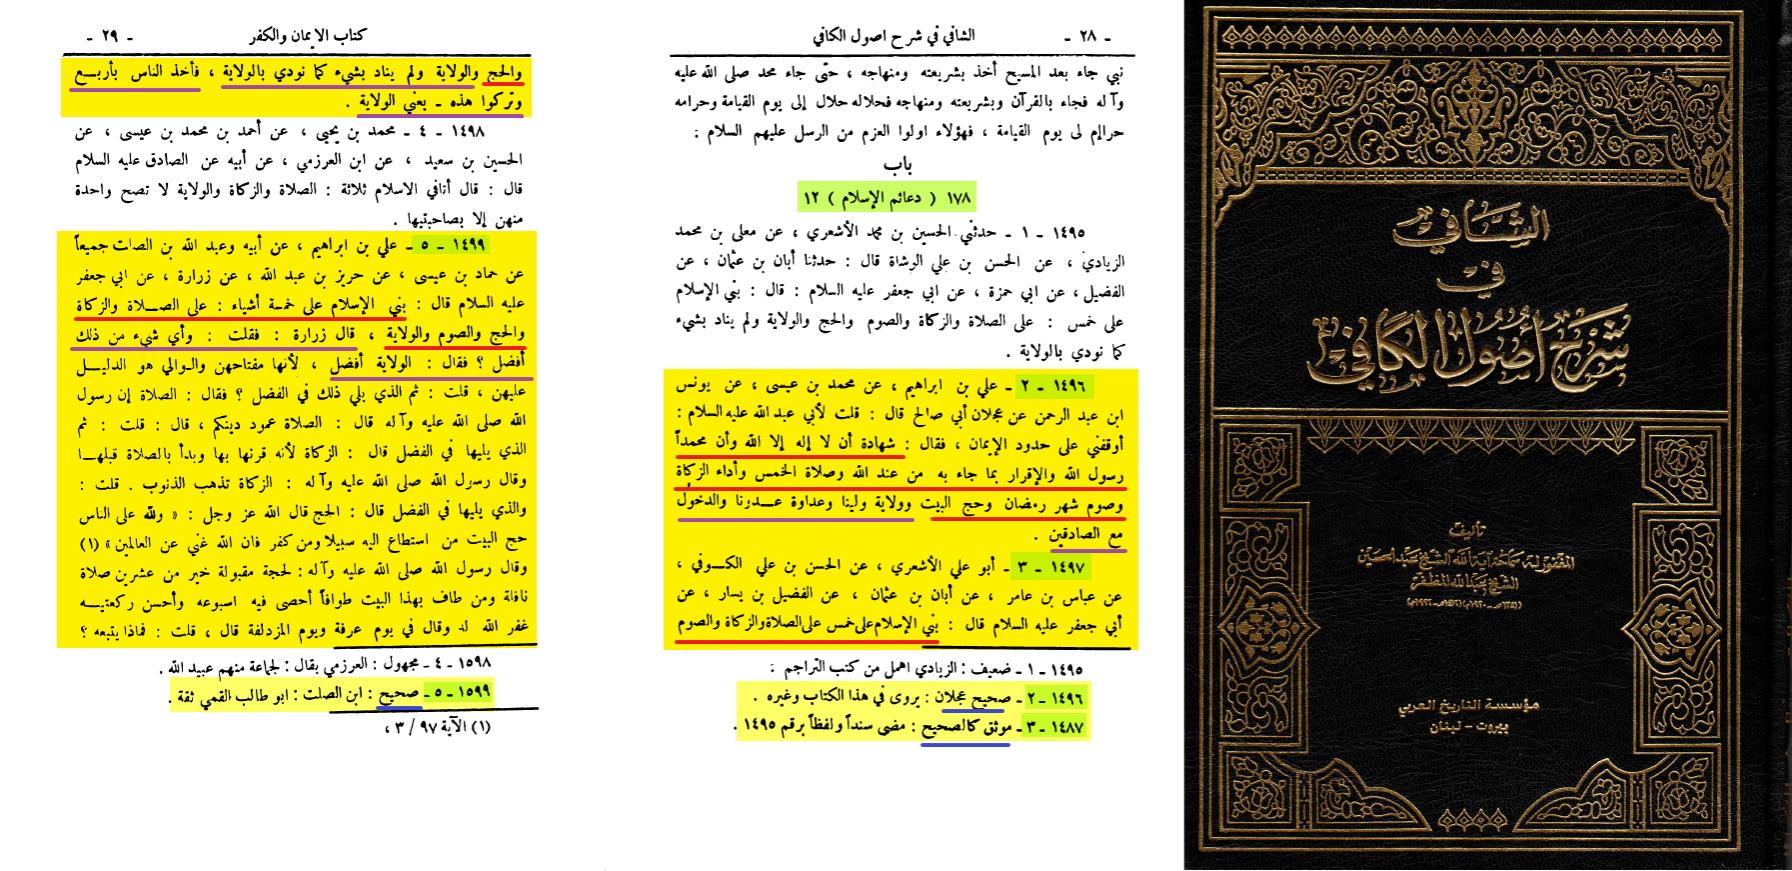 - ٢٨ - الشافي في شرح اصول الكافي
نبي جاء بعد المسيح أخذ بشريعته ومنهاجه ، حتى جاء محد صلى الله عليه
وآله فجاء بالقرآن وبشريعته ومنهاجه فحلاله حلال إلى يوم القيامة وحرامه
حرام لى يوم القيامة ، فهؤلاء اولوا العزم من الرسل عليهم السلام .
باب
١٧٨ ( دعائم الإسلام ) ١٢
١٤٩٥ - ١ - حدثني الحسين بن محمد الأشعري ، عن معلى بن محمد
الزيادي ، عن الحسن بن علي الوشاة قال : حدثنا أبان بن عثمان ، عن
الفضيل ، عن ابي حمزة ، عن ابي جعفر عليه السلام : قال : بني الإسلام
على خمس : على الصلاة والزكاة والصوم والحج والولاية ولم يناد بشيء
كما نودي بالولاية .
١٤٩٦ - ٢ - علي بن ابراهيم ، عن محمد بن عيسى ، عن يونس
ابن عبد الرحمن عن عجلان أبي صالح قال : قلت لأبي عبد الله عليه السلام :
أوقفني على حدود الإيمان ، فقال : شهادة أن لا إله إلا الله وأن محمداً
رسول الله والإقرار بما جاء به من عند الله وصلاة الخمس وأداء الزكاة
وصوم شهر رمضان وحج البيت وولاية ولينا وعداوة عدونا والدخول
مع الصادقين .
١٤٩٧ - ٣ - أبو علي الأشعري ، عن الحسن بن علي الكوفي ،
عن عباس بن عامر ، عن أبان بن عثمان ، عن الفضيل بن يسار ، عن
أبي جعفر عليه السلام قال : بني الإسلام على خمس على الصلاة والزكاة والصوم
١٤٩٥ - ١ - ضعيف : الزيادي اهمل من كتب التراجم .
١٤٩٦ - ٢ - صحيح عجلان : يروى في هذا الكتاب وغيره .
١٤٨٧ - ٣ - موثق كالصحيح : مضى سنداً ولفظاً برقم ١٤٩٥ .
كتاب الايمان والكفر - ٢٩ -
والحج والولاية ولم يناد بشيء كما نودي بالولاية ، فأخذ الناس بأربع
وتركوا هذه - يعني الولاية .
١٤٩٨ - ٤ - محمد بن يحيى ، عن أحمد بن محمد بن عيسى ، عن
الحسين بن سعيد ، عن ابن العرزمي ، عن أبيه عن الصادق عليه السلام
قال : قال أثافي الاسلام ثلاثة : الصلاة والزكاة والولاية لا تصح واحدة
منهن إلا بصاحبتيها .
١٤٩٩ - ٥ - علي بن ابراهيم ، عن أبيه وعبد الله بن الصات جميعاً
عن حماد بن عيسى ، عن حريز بن عبد الله ، عن زرارة ، عن ابي جعفر
عليه السلام قال : بني الإسلام على خمسة أشياء : على الصلاة والزكاة
والحج والصوم والولاية ، قال زرارة : فقلت : وأي شيء من ذلك
أفضل ؟ فقال : الولاية أفضل ، لأنها مفتاحهن والوالي هو الدليل
عليهن ، قلت : ثم الذي يلي ذلك في الفضل ؟ فقال : الصلاة إن رسول
الله صلى الله عليه وآله قال : الصلاة عمود دينكم ، قال : قلت : ثم
الذي يليها في الفضل قال : الزكاة لأنه قرنها بها وبدأ بالصلاة قبلها
وقال رسول الله صلى الله عليه وآله : الزكاة تذهب الذنوب . قلت :
والذي يليها في الفضل قال : الحج قال الله عز وجل : « ولله على الناس
حج البيت من استطاع اليه سبيلا ومن كفر فان الله غني عن العالمين » (١)
وقال رسول الله صلى الله عليه وآله : لحجة مقبولة خير من عشرين صلاة
نافلة ومن طاف بهذا البيت طوافاً أحصى فيه اسبوعه وأحسن ركعتيه
غفر الله له وقال في يوم عرفة ويوم المزدلفة قال ، قلت : فماذا يتبعه ؟
١٥٩٨ - ٤ - مجهول : العرزمي يقال : لجماعة منهم عبيد الله .
١٥٩٩ - ٥ - صحيح : ابن الصلت : ابو طالب القمي ثقة .
(١) الآية ٩٧ / ٣ ،
الشافي
في
شرح أصول الكافي
تأليف
المغفور له سماحة آية الله الشيخ عبد الحسين
الشيخ عبد الله المظفر
مؤسسة التاريخ العربي
بيروت - لبنان